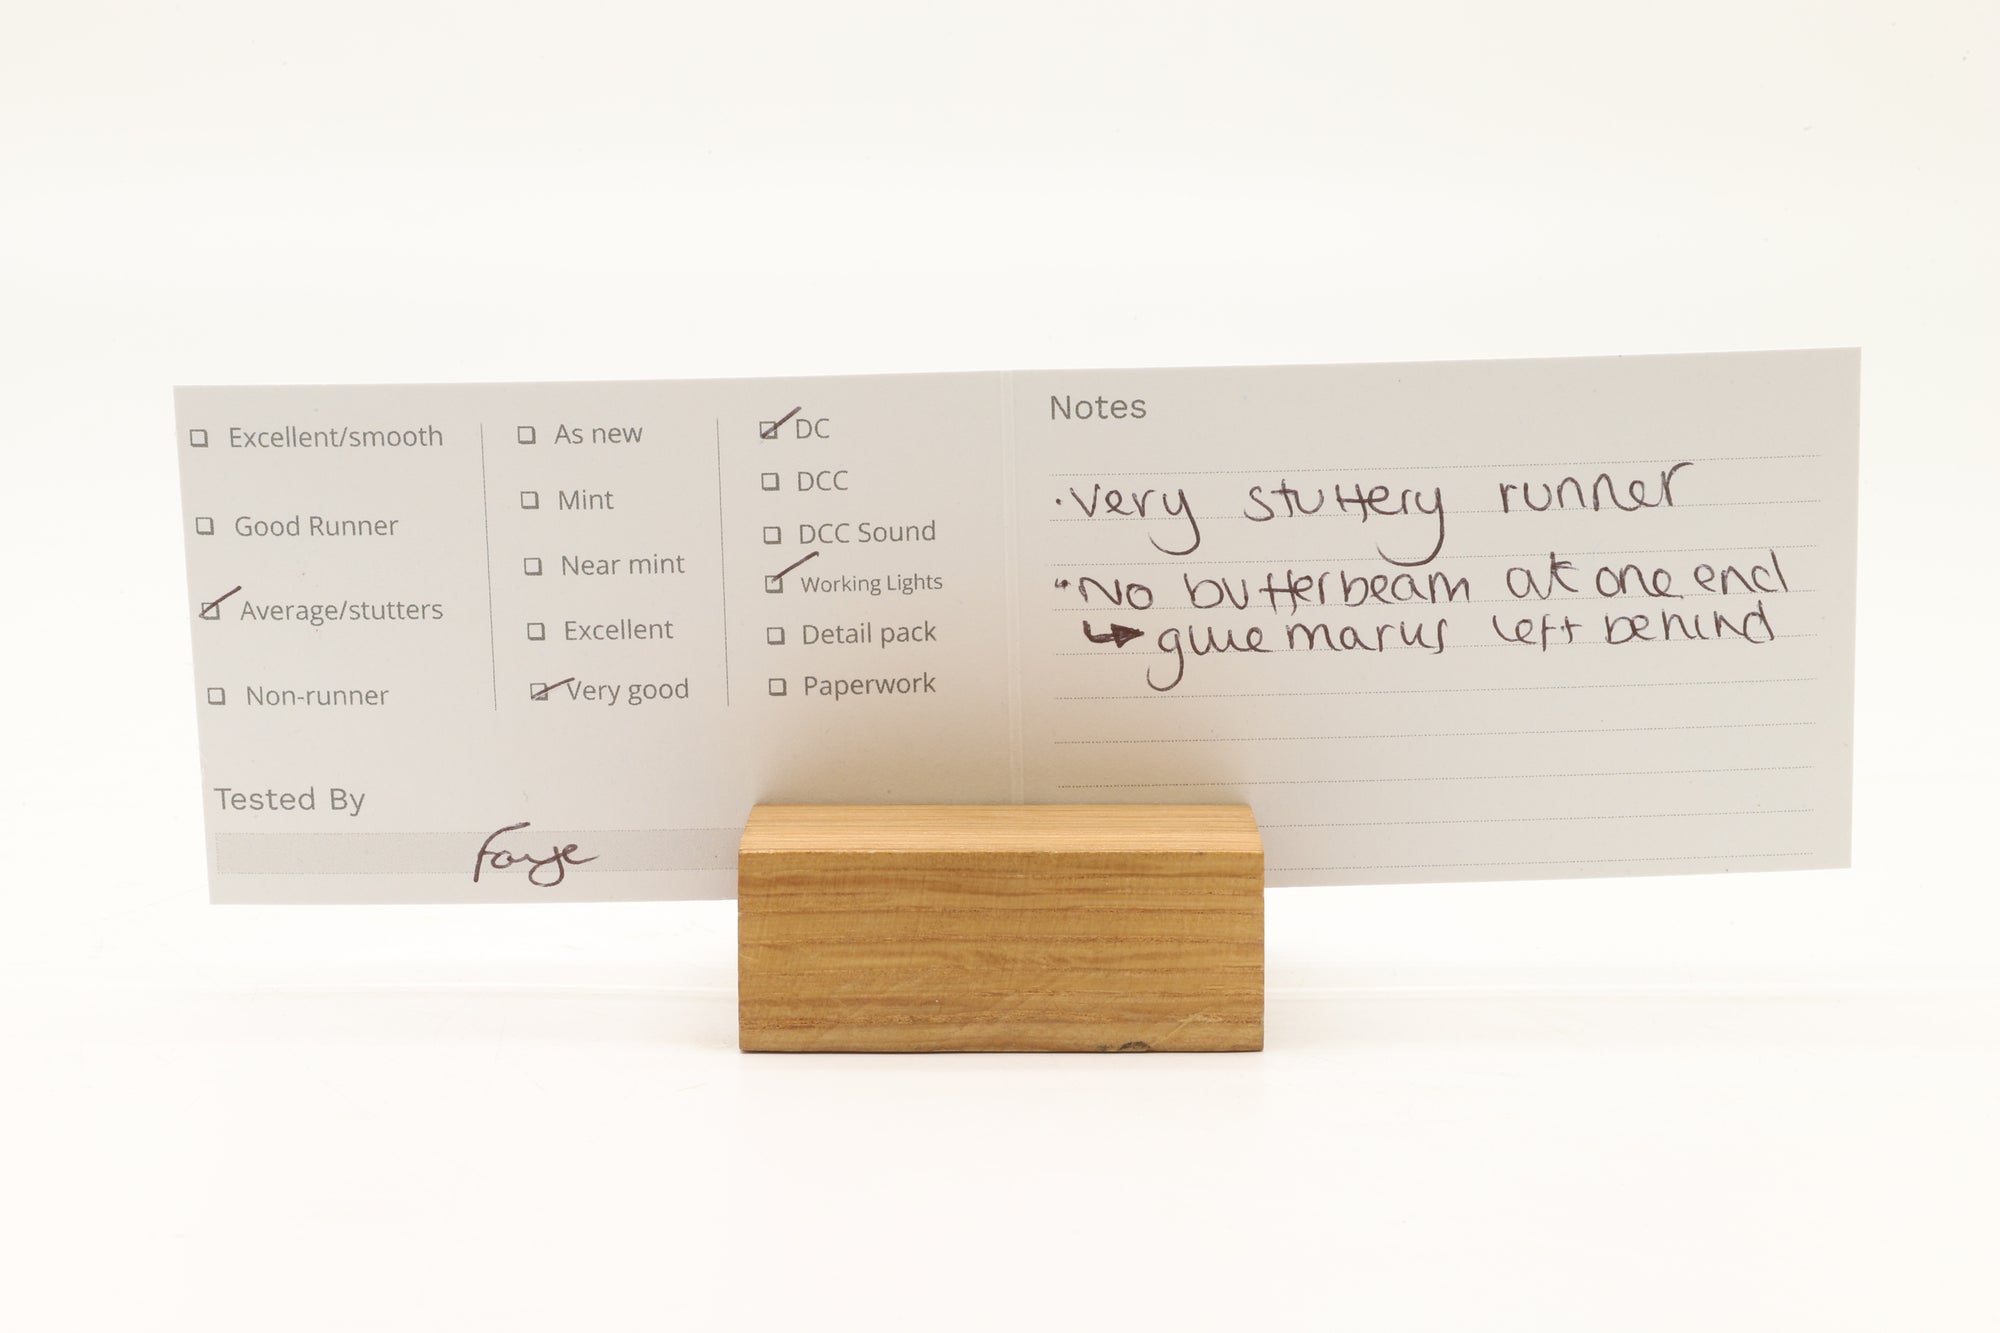 Excellent/smooth
Good Runner
Average/stutters
Non-runner
As new
Mint
Near mint
Excellent
Very good
DC
DCC
DCC Sound
Working Lights
Detail pack
Paperwork
Tested By
Faye
Notes
· very stuttery runner
· No butterbeam at one end
↳ glue marks left behind